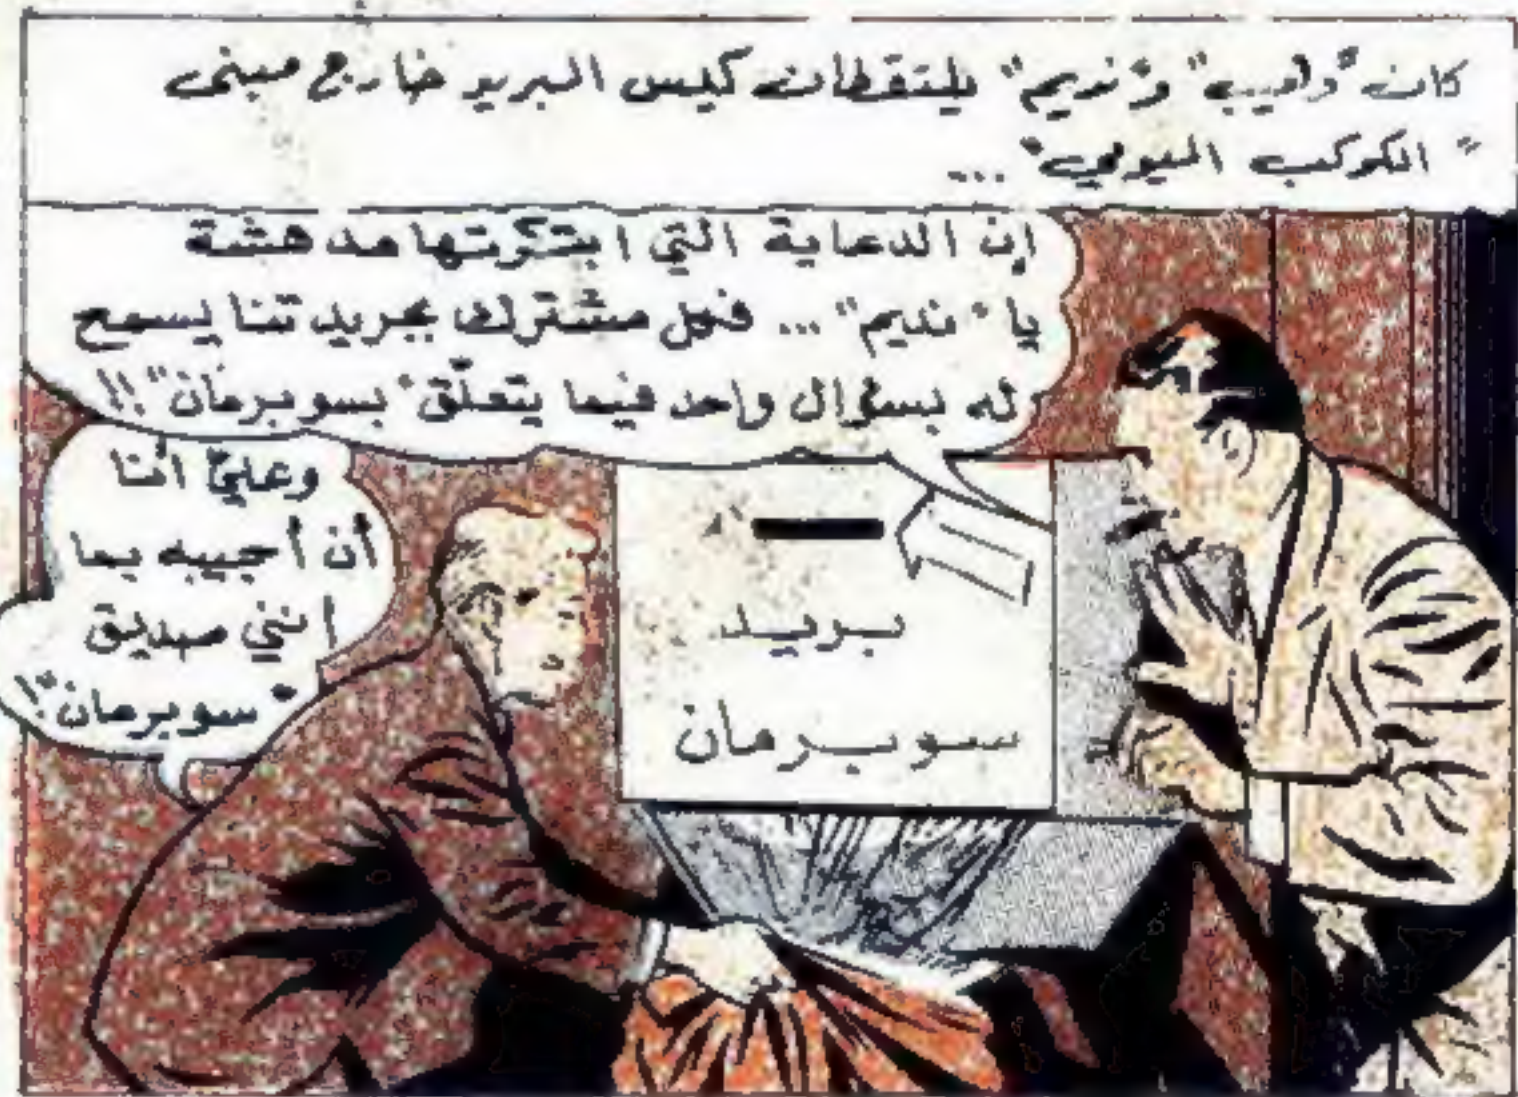 كان "وهيب" و"نديم" يلتقطان كيس البريد خارج مبنى
"الكوكب اليومي" ...
إن الدعاية التي ابتكرتها مدهشة
يا "نديم" ... فكل مشترك بجريدتنا يسمح
له بسؤال واحد فيما يتعلّق "بسوبرمان"!!
وعليّ أنا
أن أجيبه بما
إنني صديق
"سوبرمان"!
بريد
سوبرمان